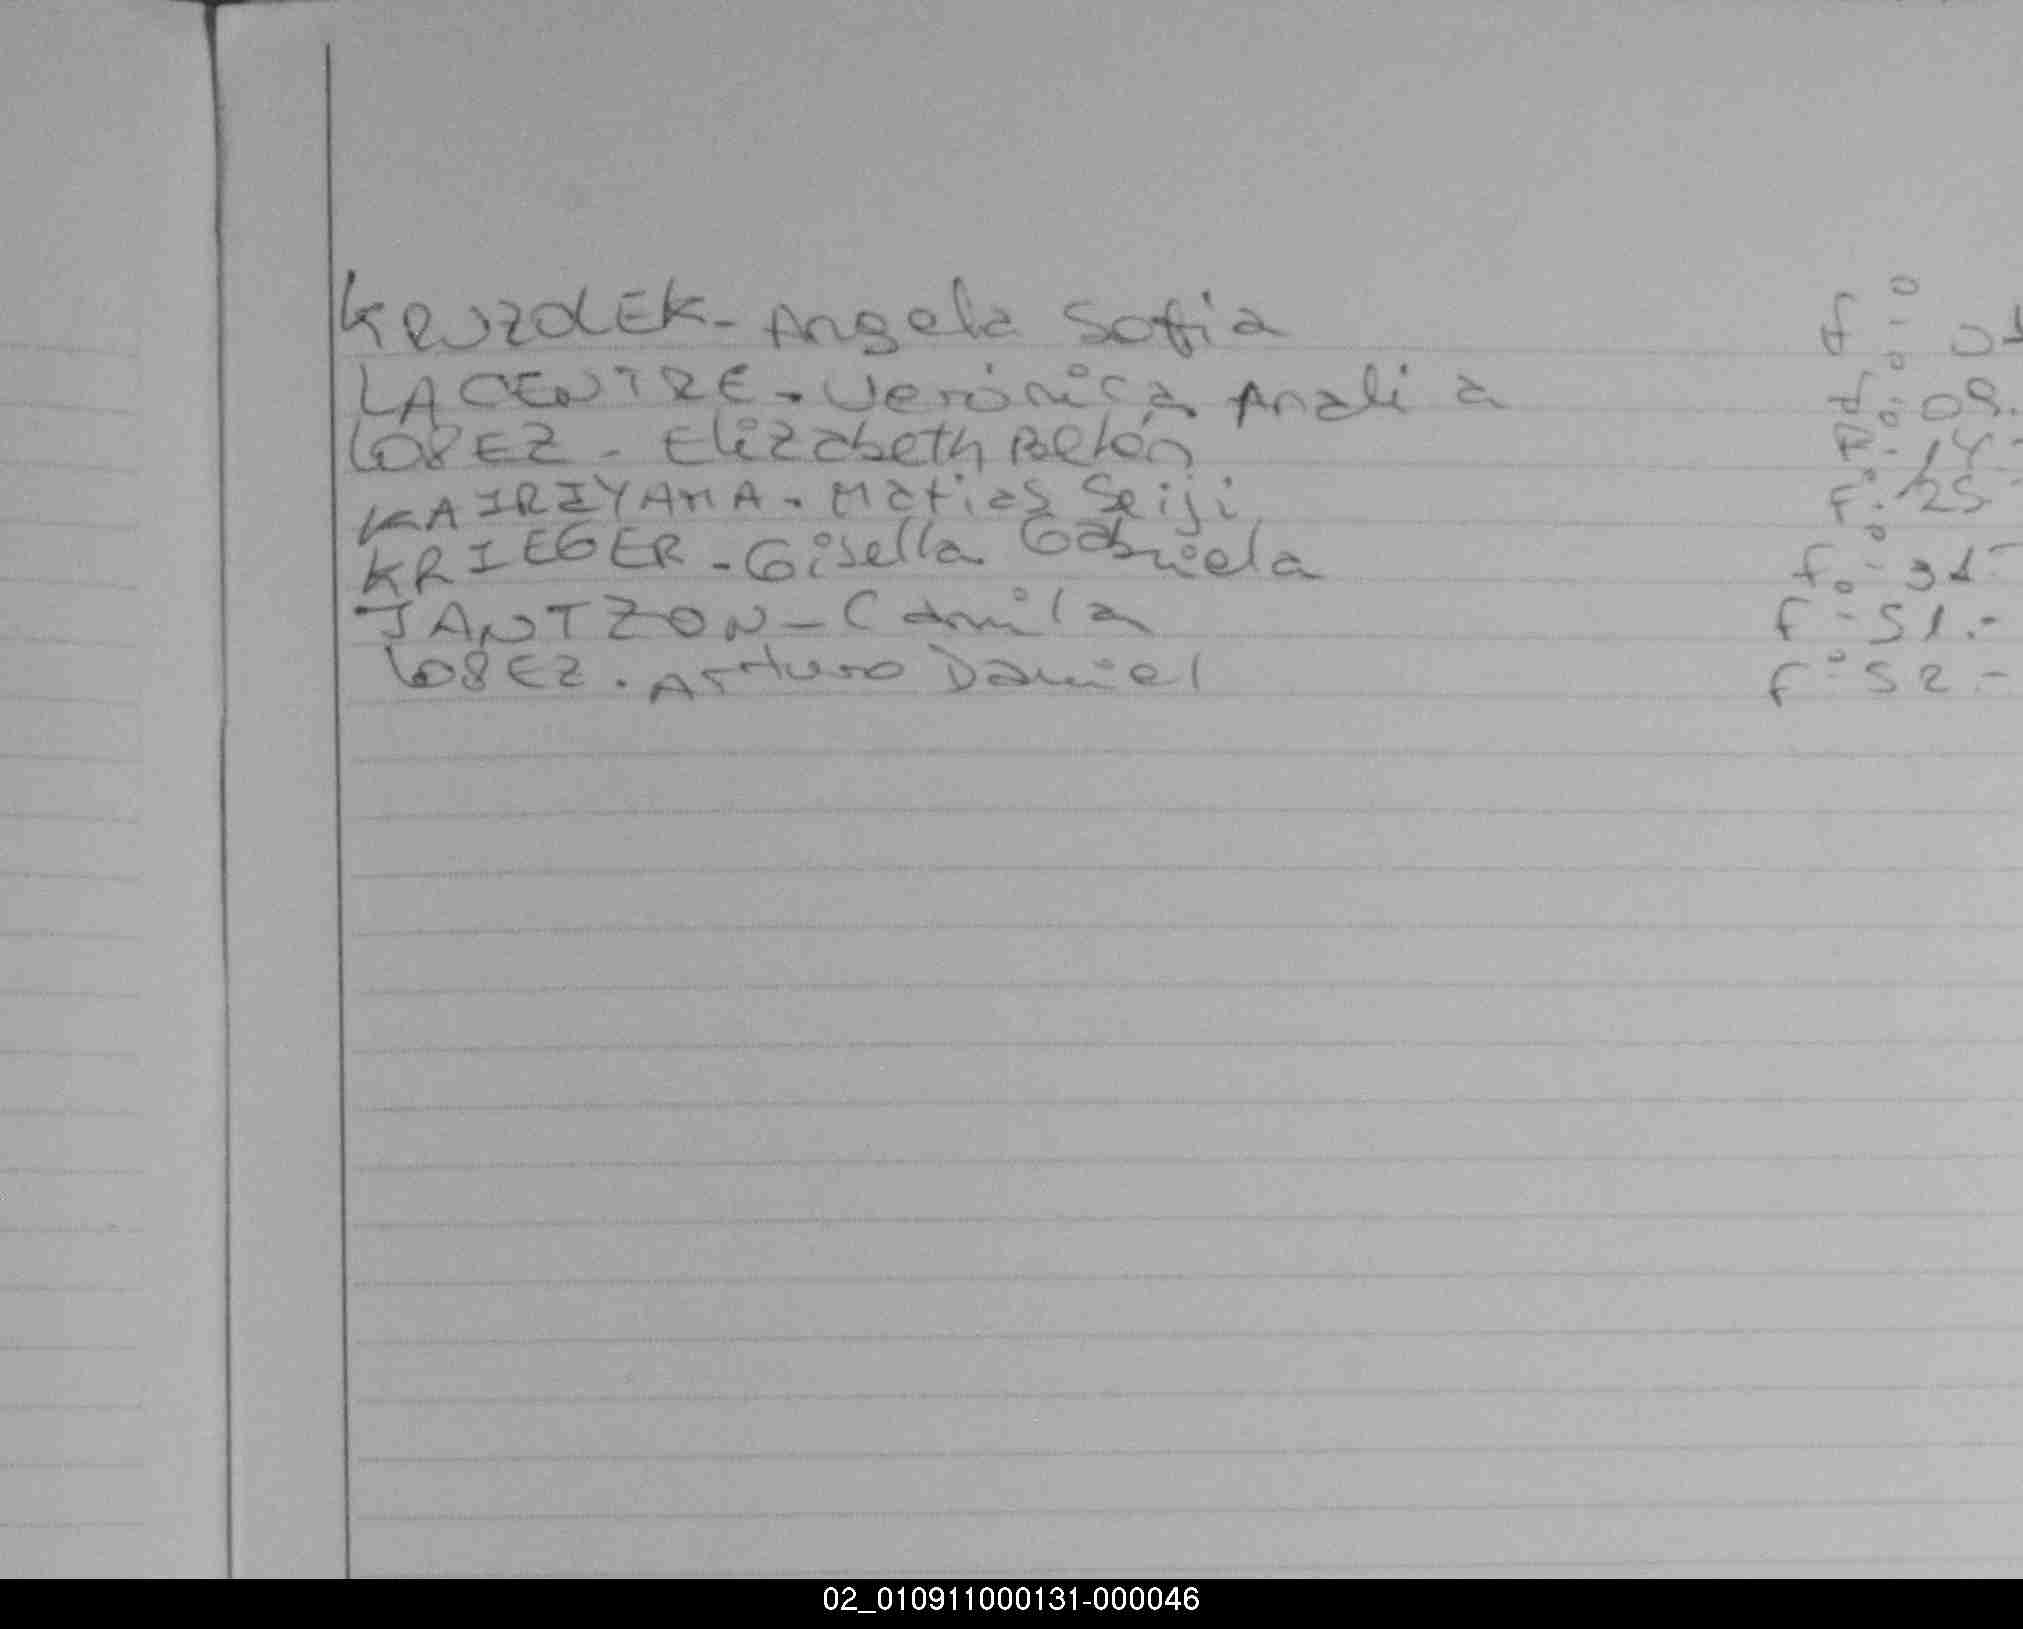 KRUZOLEK - Angela Sofia fº:
LACENTRE - Verónica Analia fº: 09.
LOPEZ - Elizabeth Belén Fº: 14 -
KAIRIYAMA - Matias Seiji Fº: 25 -
KRIEGER - Gisella Gabriela fº: 31 -
JANTZON - Camila fº: 51.-
LOPEZ. Arturo Daniel fº: 52.-
02_010911000131-000046